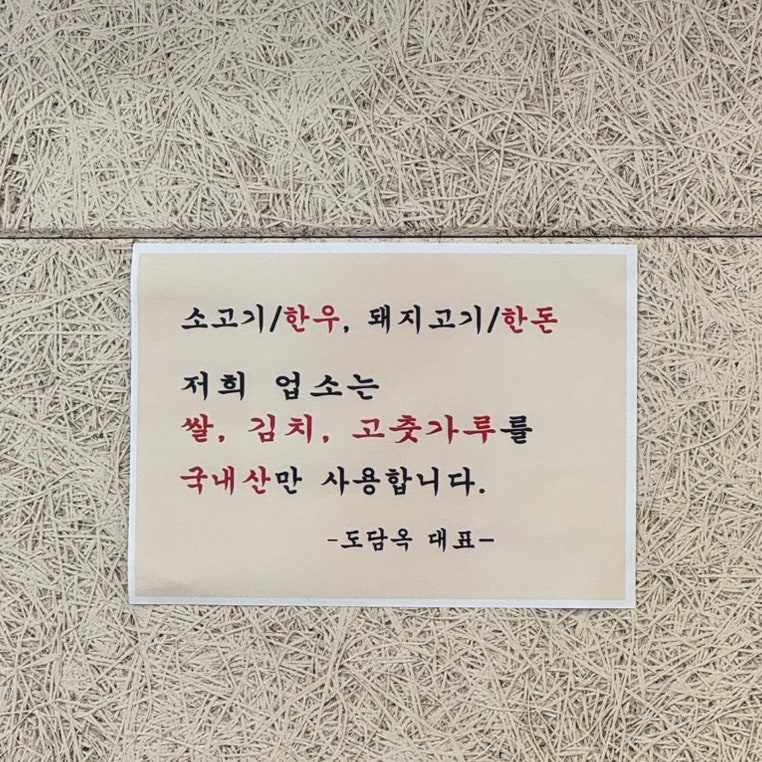 소고기/한우, 돼지고기/한돈
저희 업소는
쌀, 김치, 고춧가루를
국내산만 사용합니다.
-도담옥 대표-